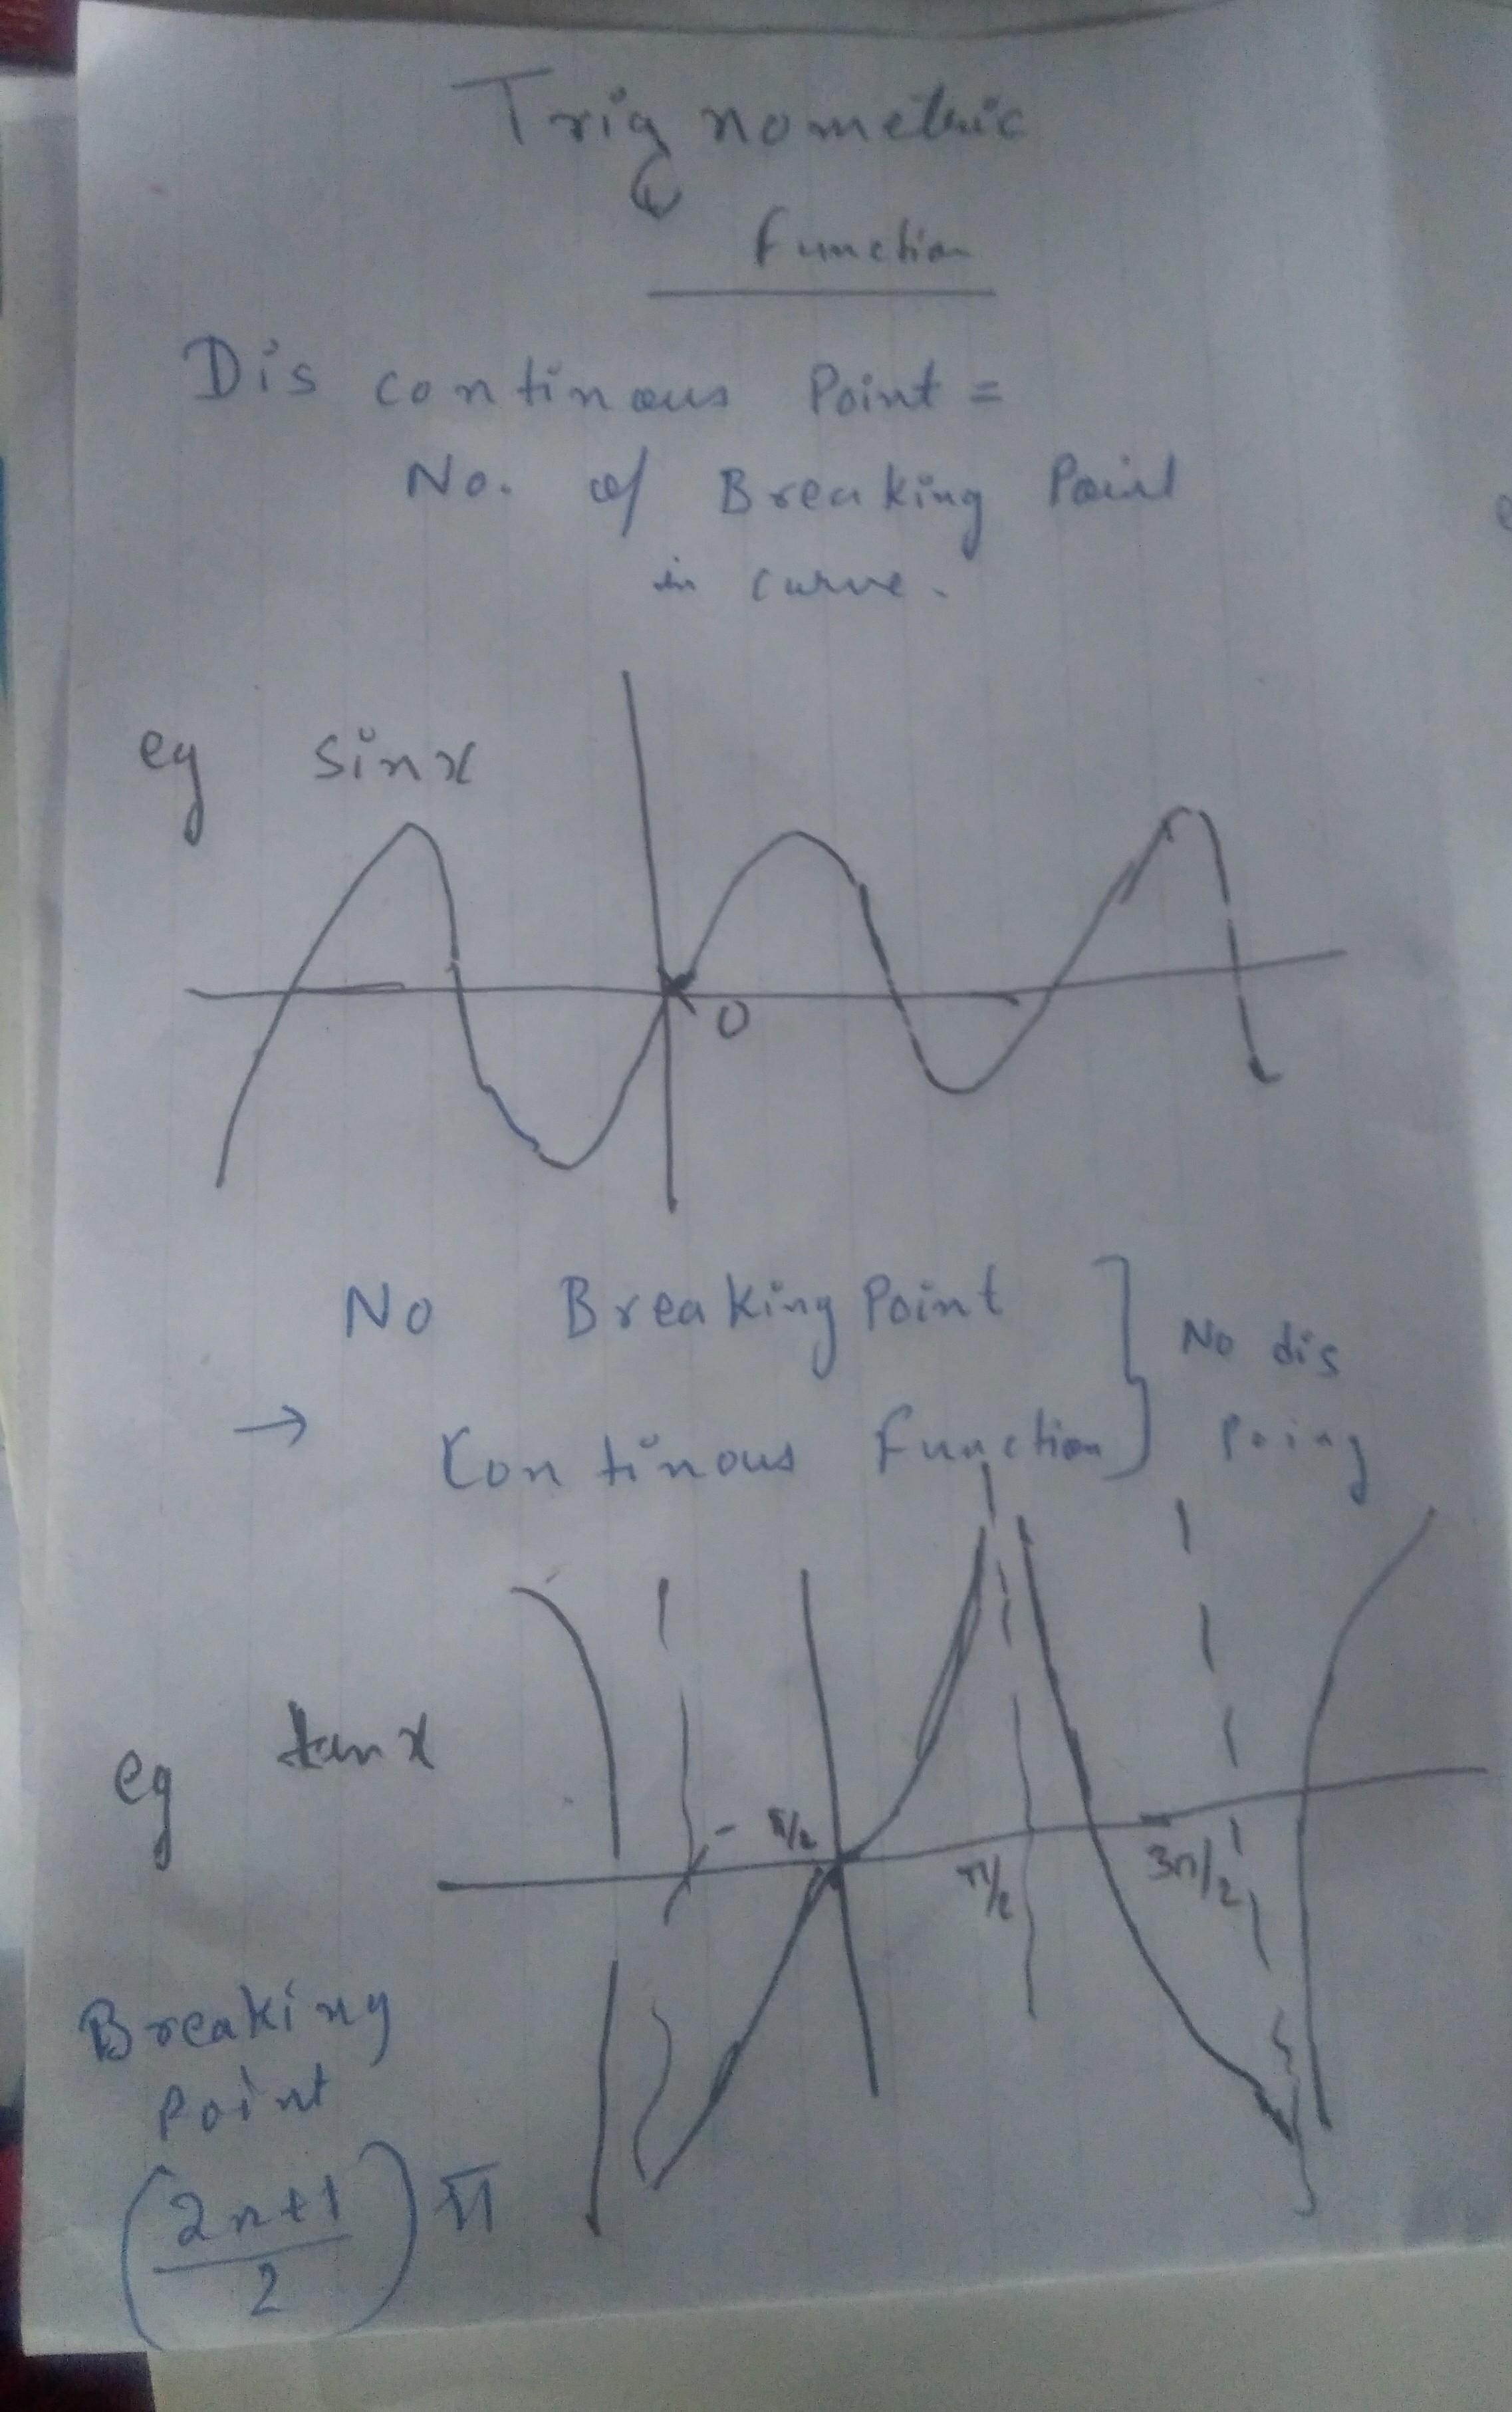 Trignometric
Function
Dis continous Point =
No. of Breaking Point
in curve.
eg sinx
0
No Breaking Point
→ Continous Function
No dis
Poing
eg tanx
- π/2
π/2
3π/2
Breaking
Point
(2n+1/2) π